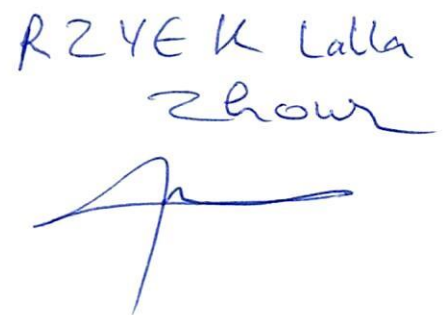 RZYEK Lalla
Zhour